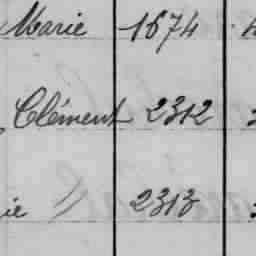 Marie 1674
Clément 2312
ie 2313